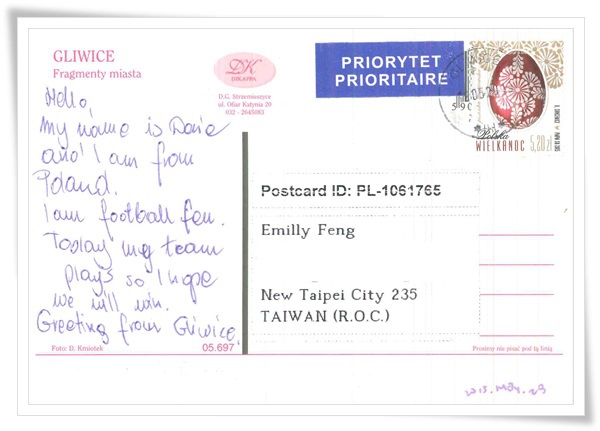 GLIWICE
Fragmenty miasta
DK
DIKAPPA
D.G. Strzemieszyce
ul. Ofiar Katynia 29
032 - 2645083
PRIORYTET
PRIORITAIRE
Polska
WIELKANOC 5,20 zł
Hello,
My name is Darie
and I am from
Poland.
I am football fan.
Today my team
plays so I hope
we will win.
Greeting from Gliwice
Postcard ID: PL-1061765
Emilly Feng
New Taipei City 235
TAIWAN (R.O.C.)
Foto: D. Kmiotek
05.697
Prosimy nie pisać pod tą linią
2015.May.29